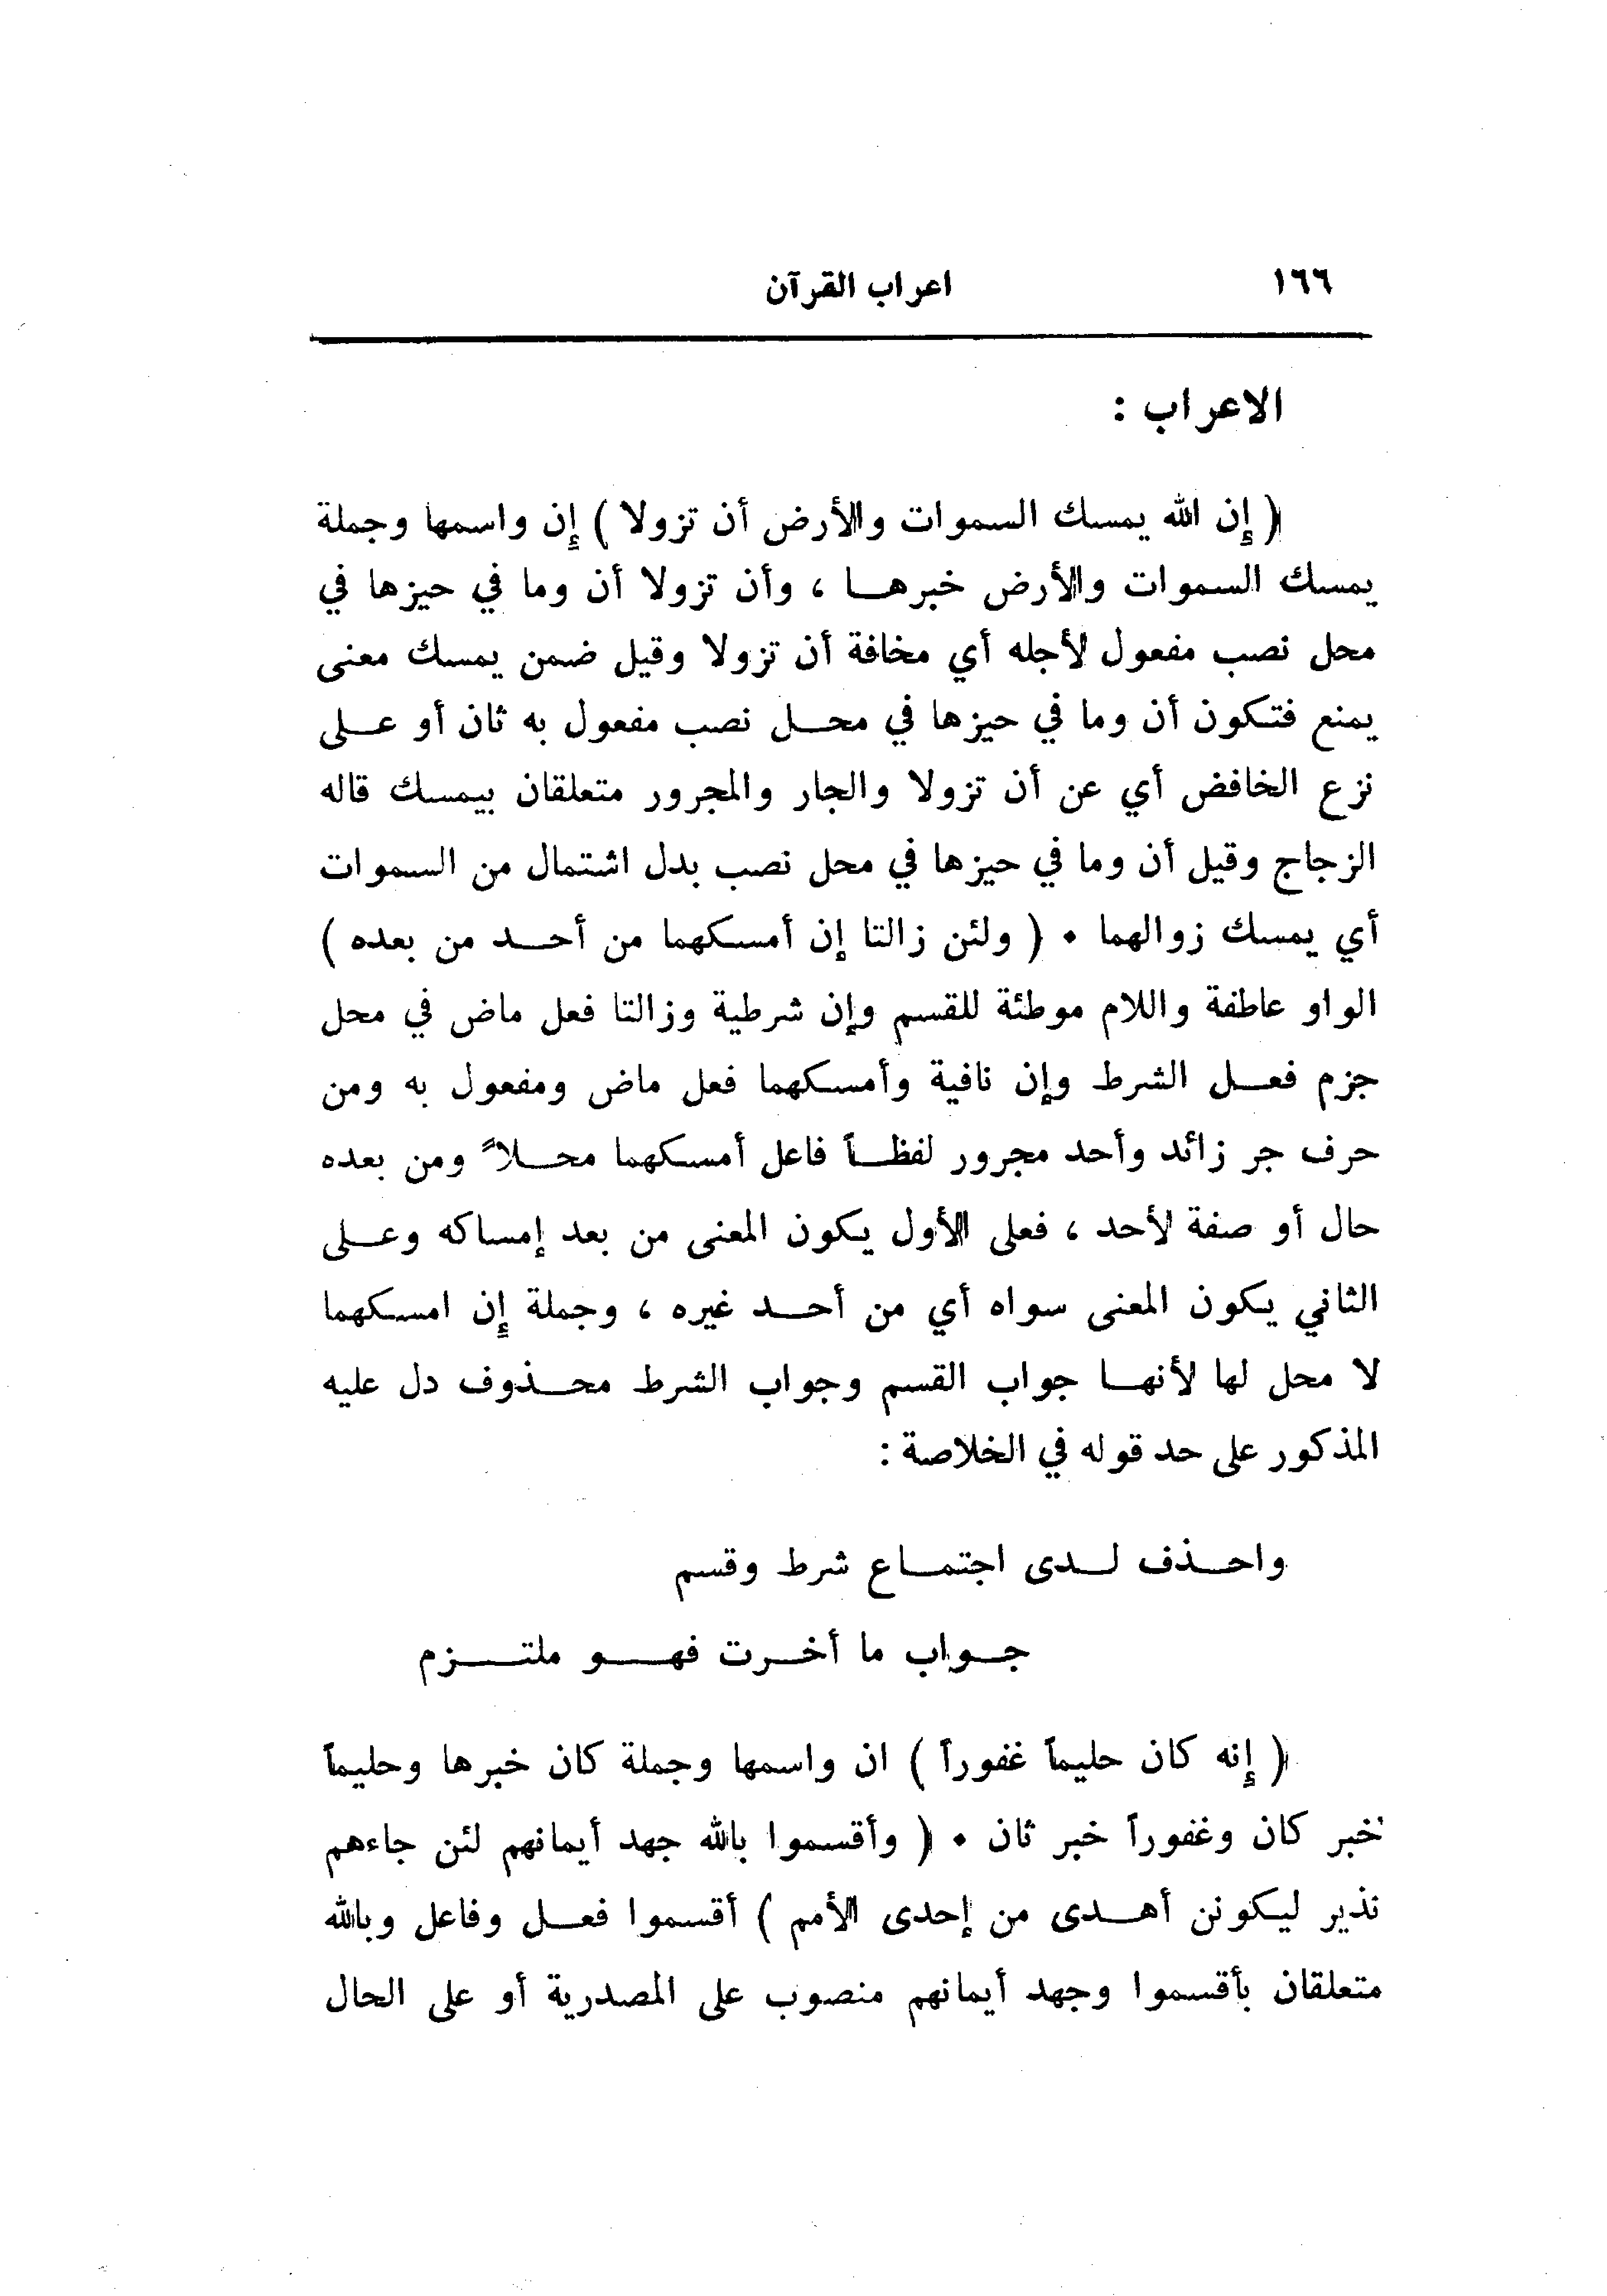 ١٦٦ اعراب القرآن
الاعراب :
( إن الله يمسك السموات والأرض أن تزولا ) إن واسمها وجملة
يمسك السموات والأرض خبرهـا ، وأن تزولا أن وما في حيزها في
محل نصب مفعول لأجله أي مخافة أن تزولا وقيل ضمن يمسك معنى
يمنع فتكون أن وما في حيزها في محـل نصب مفعول به ثان أو عـلى
نزع الخافض أي عن أن تزولا والجار والمجرور متعلقان بيمسك قاله
الزجاج وقيل أن وما في حيزها في محل نصب بدل اشتمال من السموات
أي يمسك زوالهما . ( ولئن زالتا إن أمسكهما من أحـد من بعده )
الواو عاطفة واللام موطئة للقسم وإن شرطية وزالتا فعل ماض في محل
جزم فعـل الشرط وإن نافية وأمسكهما فعل ماض ومفعول به ومن
حرف جر زائد وأحد مجرور لفظـاً فاعل أمسكهما محـلاً ومن بعده
حال أو صفة لأحد ، فعلى الأول يكون المعنى من بعد إمساكه وعـلى
الثاني يكون المعنى سواه أي من أحـد غيره ، وجملة إن امسكهما
لا محل لها لأنهـا جواب القسم وجواب الشرط محـذوف دل عليه
المذكور على حد قوله في الخلاصة :
واحـذف لـدى اجتمـاع شرط وقسم
جـواب ما أخـرت فهـو ملتـزم
( إنه كان حليماً غفوراً ) ان واسمها وجملة كان خبرها وحليماً
خبر كان وغفوراً خبر ثان . ( وأقسموا بالله جهد أيمانهم لئن جاءهم
نذير ليكونن أهـدى من إحدى الأمم ) أقسموا فعـل وفاعل وبالله
متعلقان بأقسموا وجهد أيمانهم منصوب على المصدرية أو على الحال